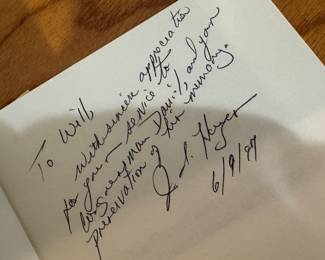 To Will
With sincere appreciation
for your service to
Congressman Davis, and your
preservation of his memory.
6/9/97